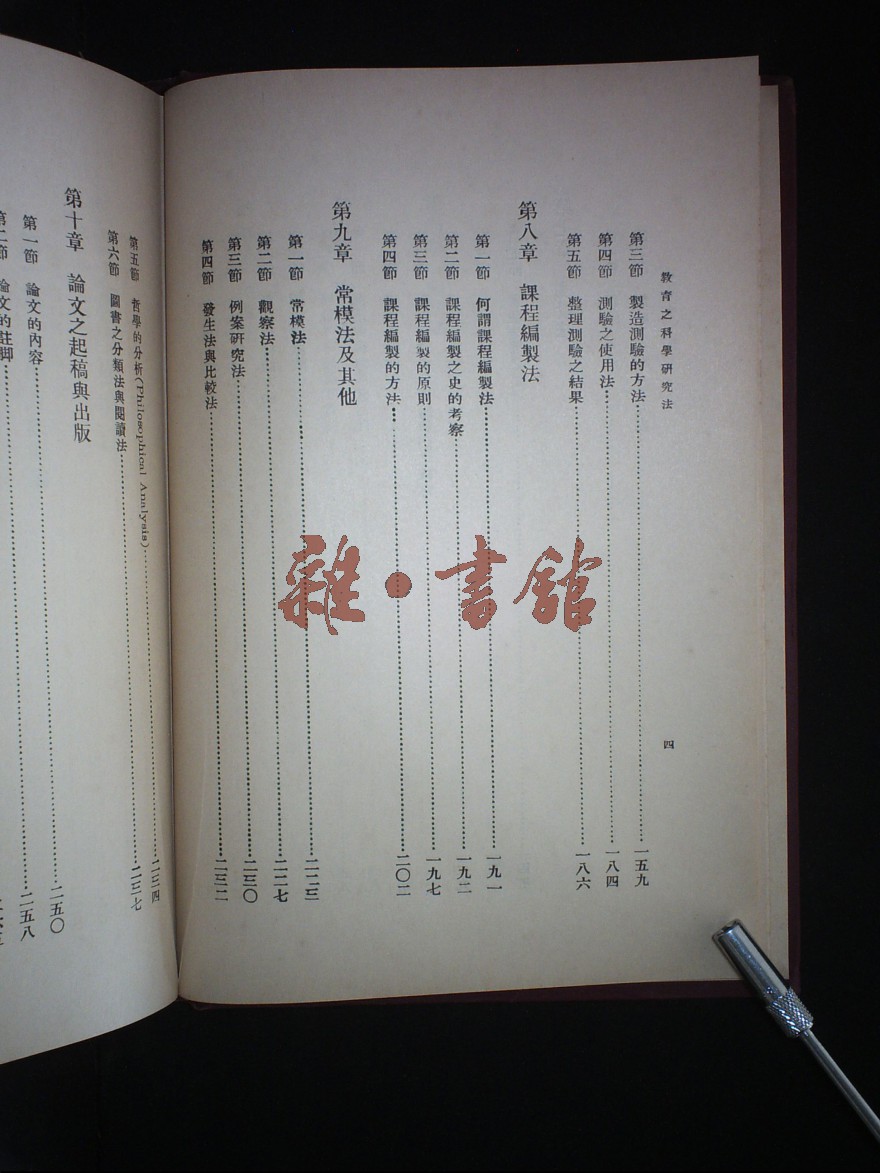 教育之科學研究法
四
第三節 製造測驗的方法 一五九
第四節 測驗之使用法 一八四
第五節 整理測驗之結果 一八六
第八章 課程編製法
第一節 何謂課程編製法 一九一
第二節 課程編製之史的考察 一九二
第三節 課程編製的原則 一九七
第四節 課程編製的方法 二〇二
第九章 常模法及其他
第一節 常模法 二二三
第二節 觀察法 二二七
第三節 例案研究法 二三〇
第四節 發生法與比較法 二三二
第五節 哲學的分析(Philosophical Analysis) 二三四
第六節 圖書之分類法與閱讀法 二三七
第十章 論文之起稿與出版 二五〇
第一節 論文的內容 二五八
第二節 論文的註脚
雜·書館